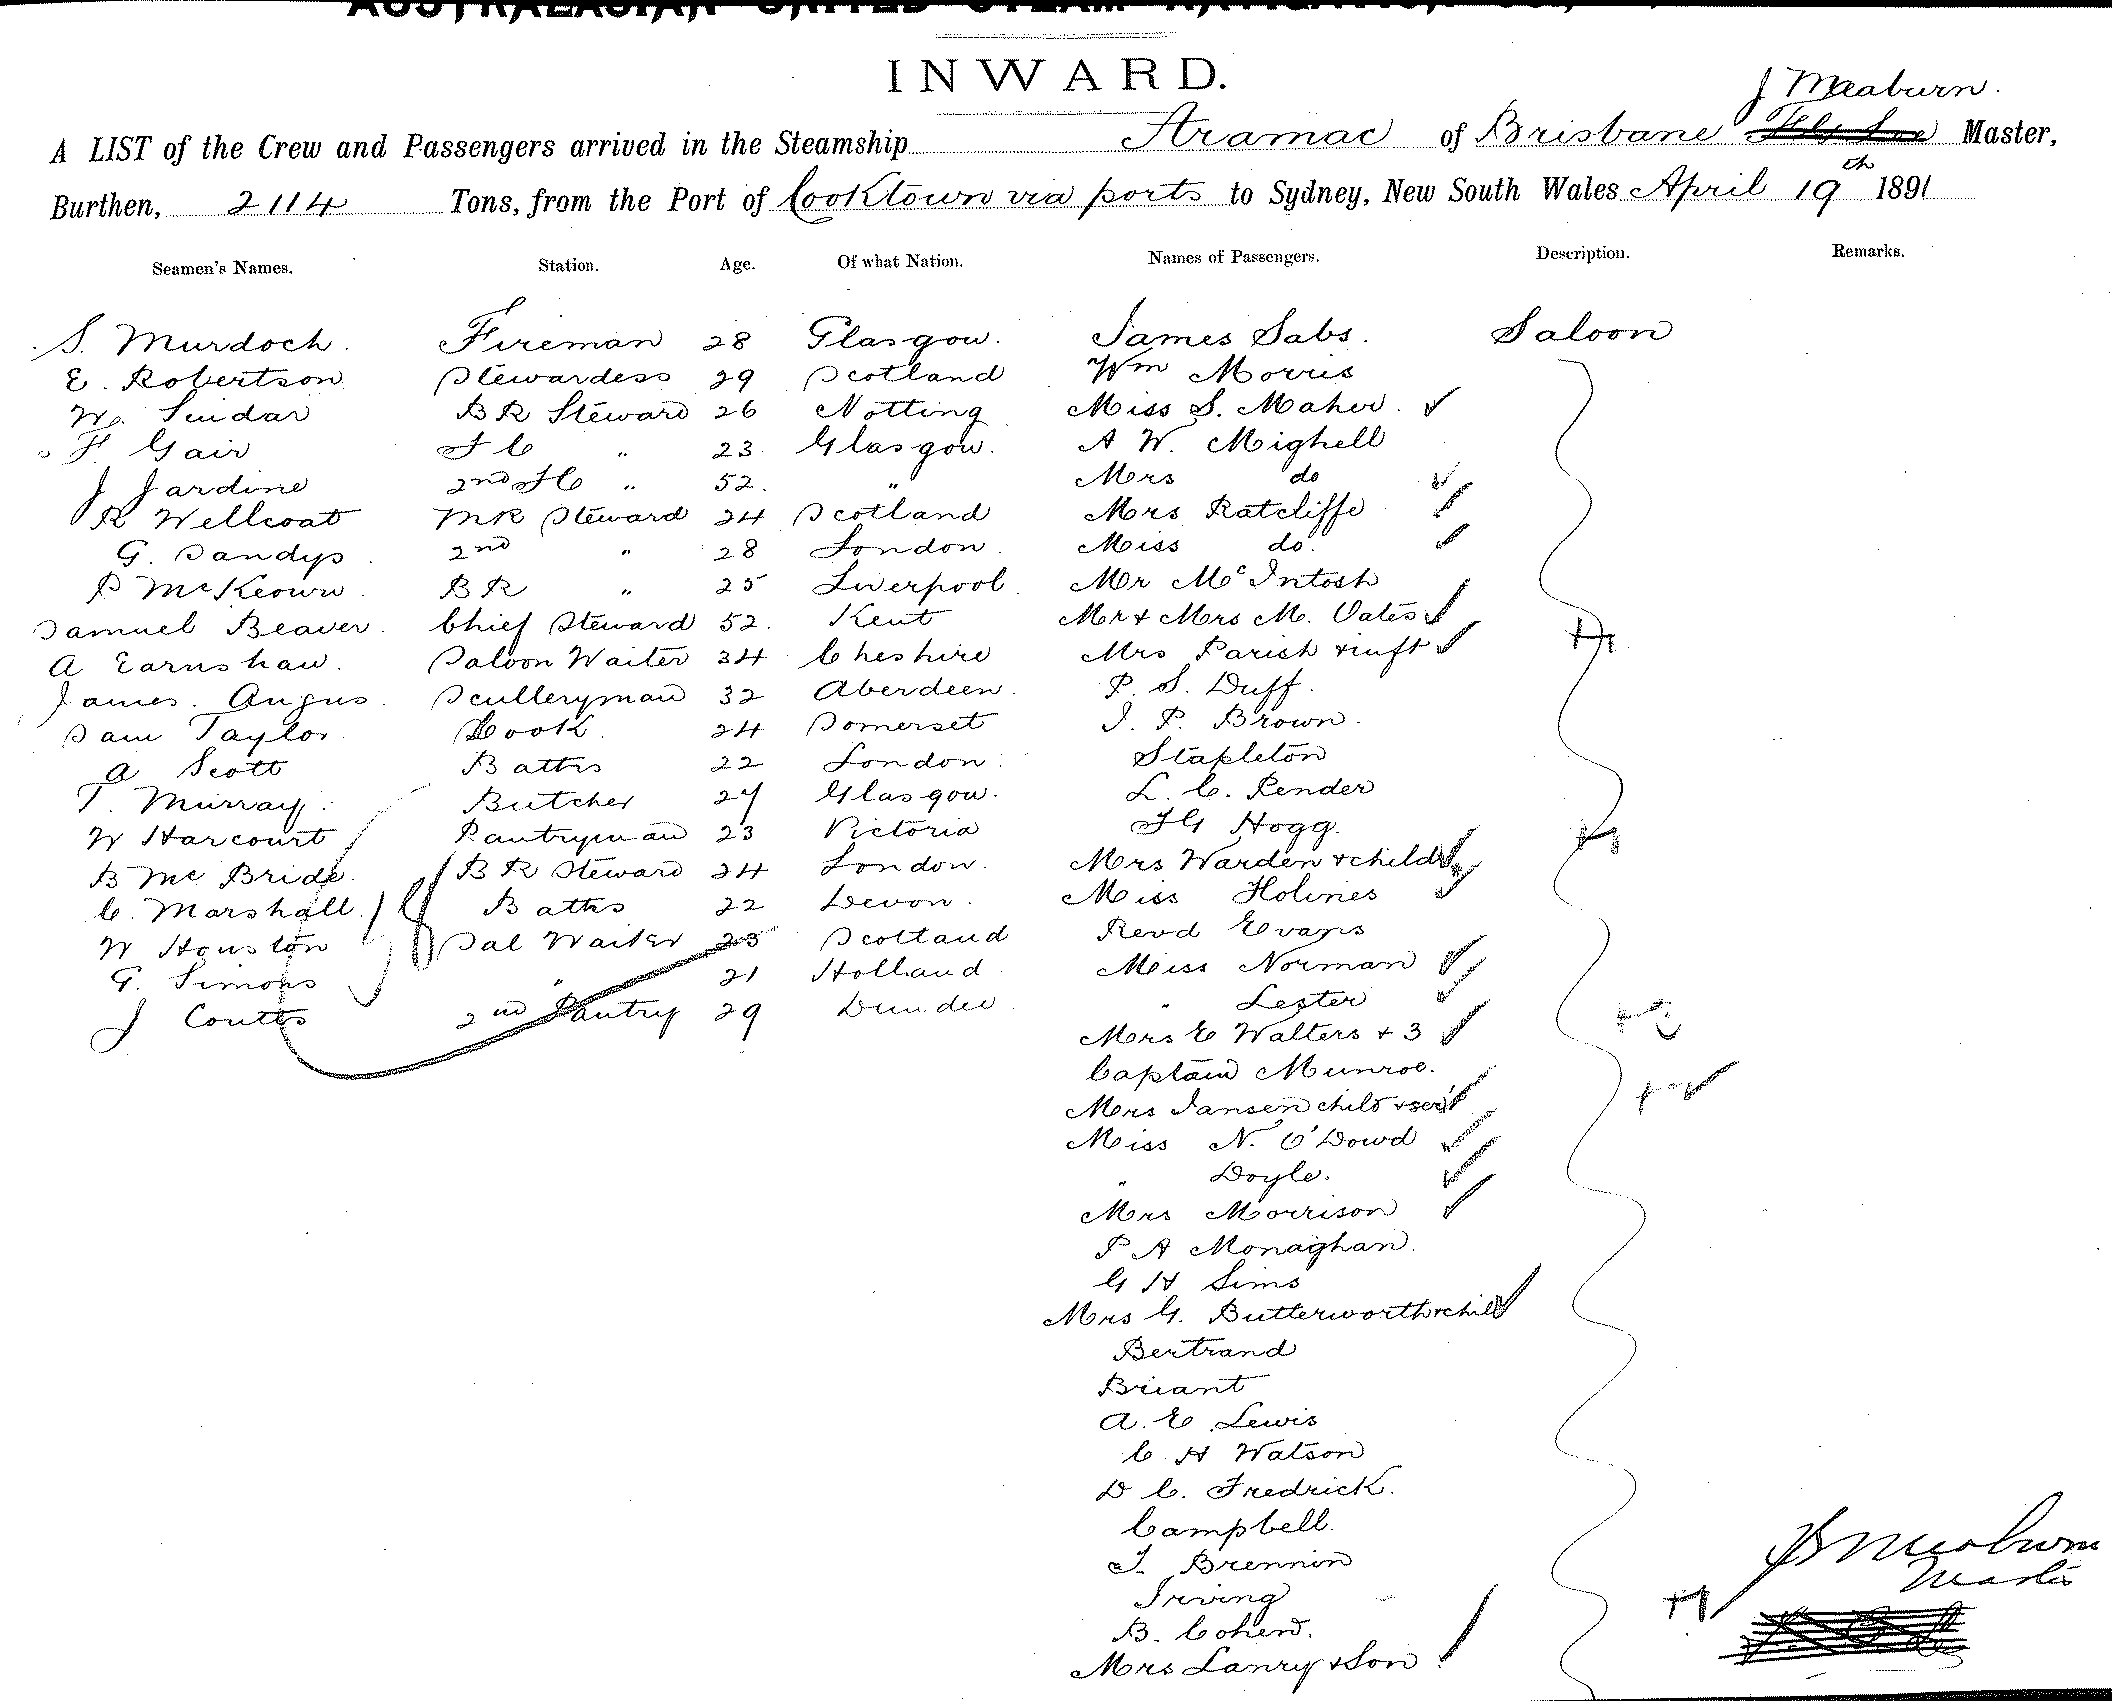 AUSTRALASIAN UNITED STEAM NAVIGATION CO.,
INWARD.
J Meaburn.
A LIST of the Crew and Passengers arrived in the Steamship Aramac of Brisbane Master,
Burthen, 2114 Tons, from the Port of Cooktown via ports to Sydney, New South Wales April 19th 1891
Seamen's Names. Station. Age. Of what Nation. Names of Passengers. Description. Remarks.
S. Murdoch. Fireman 28 Glasgow. James Sabs. Saloon
E. Robertson Stewardess 29 Scotland Wm Morris
W. Sindar BR Steward 26 Notting Miss S. Maher.
F. Gair FC " 23 Glasgow. A W. Mighell
J Jardine 2nd FC " 52. " Mrs do
R Wellcoat MR Steward 24 Scotland Mrs Ratcliffe
G. Sandys 2nd " 28 London Miss do.
P McKeown BR " 25 Liverpool Mr McIntosh
Samuel Beaver. Chief Steward 52. Kent Mr & Mrs M. Oates
A Earnshaw. Saloon Waiter 34 Cheshire Mrs Parish & inft
James. Angus. Sculleryman 32 Aberdeen. P. S. Duff.
Sam Taylor. Cook. 24 Somerset J. P. Brown.
A Scott Baths 22 London. Stapleton
T. Murray. Butcher 27 Glasgow. L. C. Pender
W Harcourt Pantryman 23 Victoria FG Hogg.
B Mc Bride. BR Steward 24 London. Mrs Warden & child
C. Marshall. Baths 22 Devon. Miss Holmes
W Houston Sal Waiter 25 Scotland Revd Evans
G. Simons " 21 Holland Miss Norman
J Coutts 2nd Pantry 29 Dundee " Lester
Mrs E Walters + 3
Captain Munroe.
Mrs Jansen child & serv
Miss N. O'Dowd
" Doyle.
Mrs Morrison
P A Monaghan.
G H Sims
Mrs G. Butterworth & child
Bertrand
Briant
A. E Lewis
C H Watson
D C. Fredrick.
Campbell.
J. Brennin
Irving
B. Cohen.
Mrs Lanry & Son
J Meaburn
Master